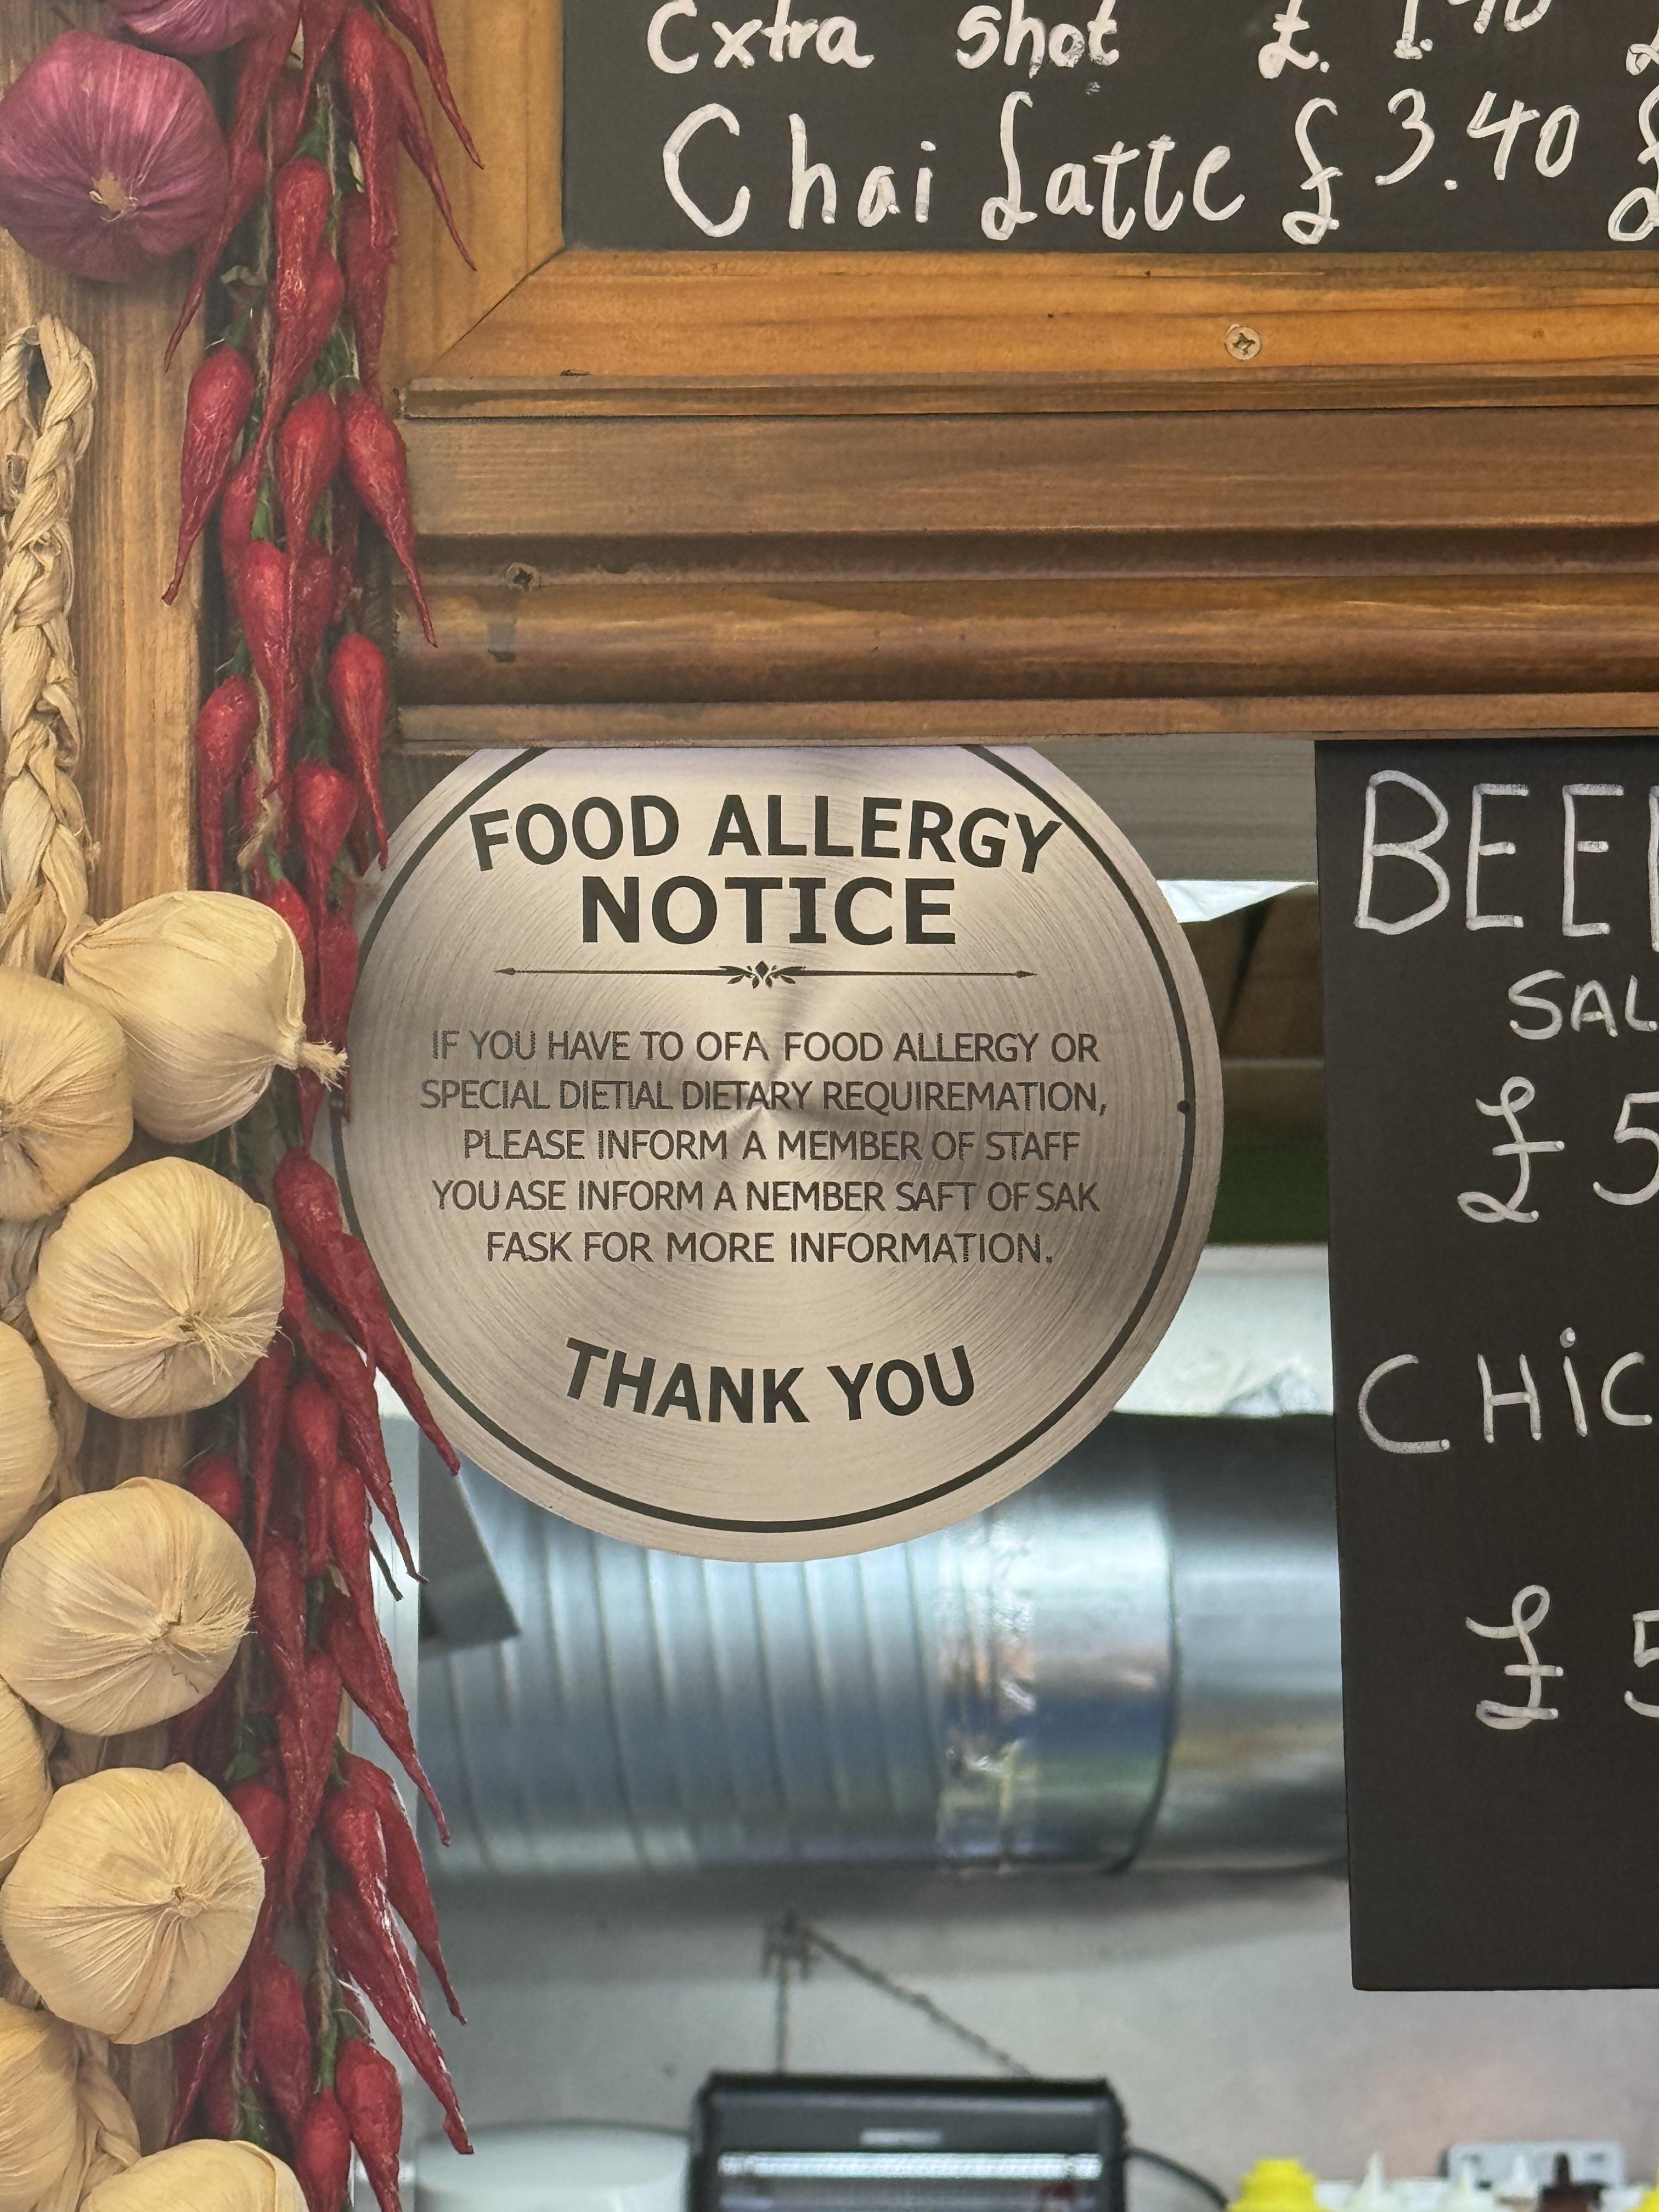 Extra shot £. 1.40 £
Chai Latte £3.40 £
FOOD ALLERGY
NOTICE
IF YOU HAVE TO OFA FOOD ALLERGY OR
SPECIAL DIETIAL DIETARY REQUIREMATION,
PLEASE INFORM A MEMBER OF STAFF
YOU ASE INFORM A NEMBER SAFT OF SAK
FASK FOR MORE INFORMATION.
THANK YOU
BEE
SAL
£ 5
CHiC
£ 5